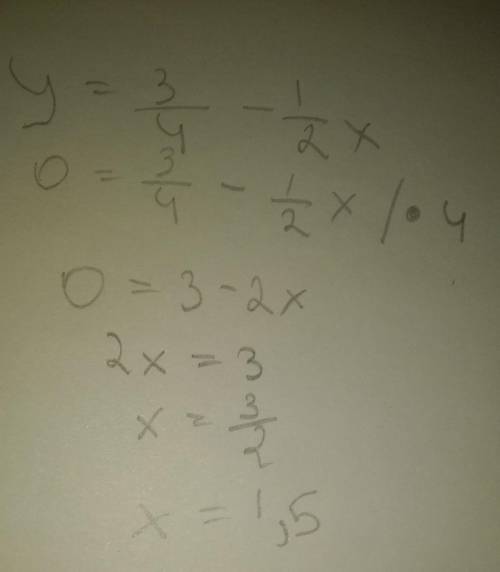 y = 3/4 - 1/2 x
0 = 3/4 - 1/2 x / • 4
0 = 3 - 2x
2x = 3
x = 3/2
x = 1,5